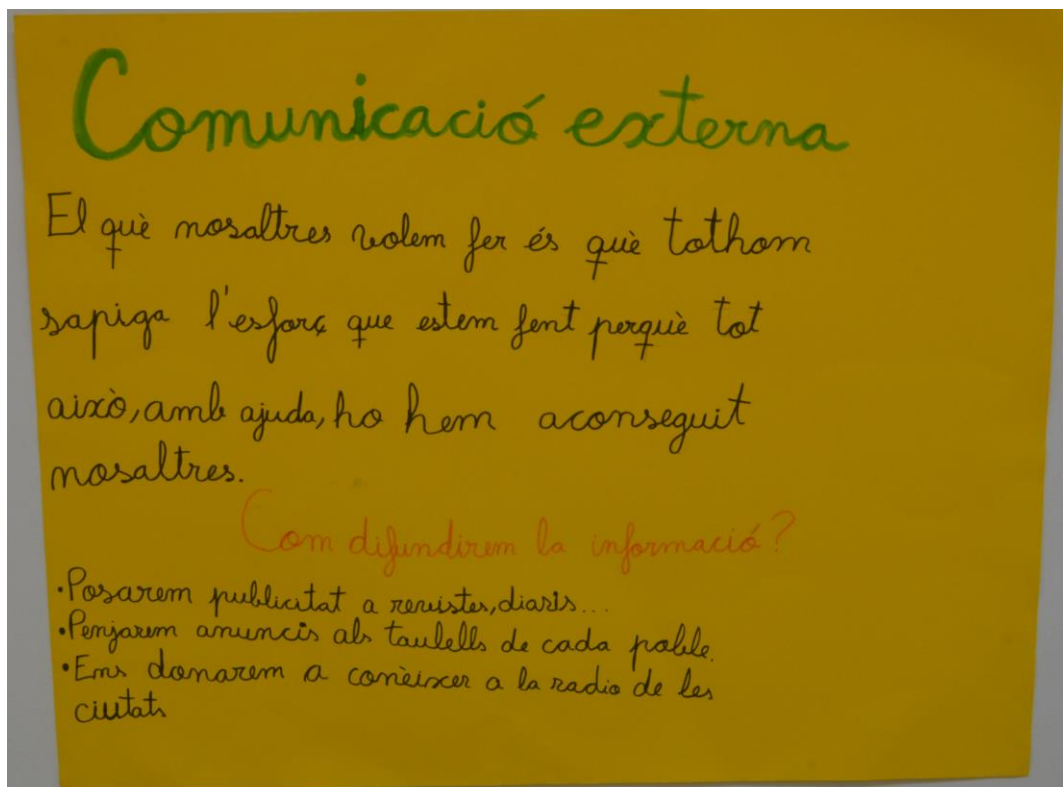 Comunicació externa
El què nosaltres volem fer és què tothom
sapiga l'esforç que estem fent perquè tot
això, amb ajuda, ho hem aconseguit
nosaltres.
Com difundirem la informació?
·Posarem publicitat a revistes, diaris...
·Penjarem anuncis als taulells de cada poble.
·Ens donarem a conèixer a la radio de les
ciutats